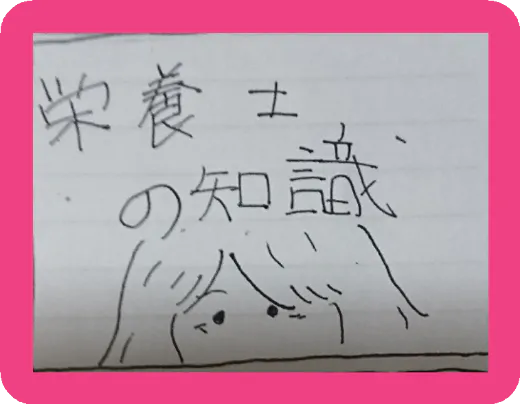 栄養士
の知識